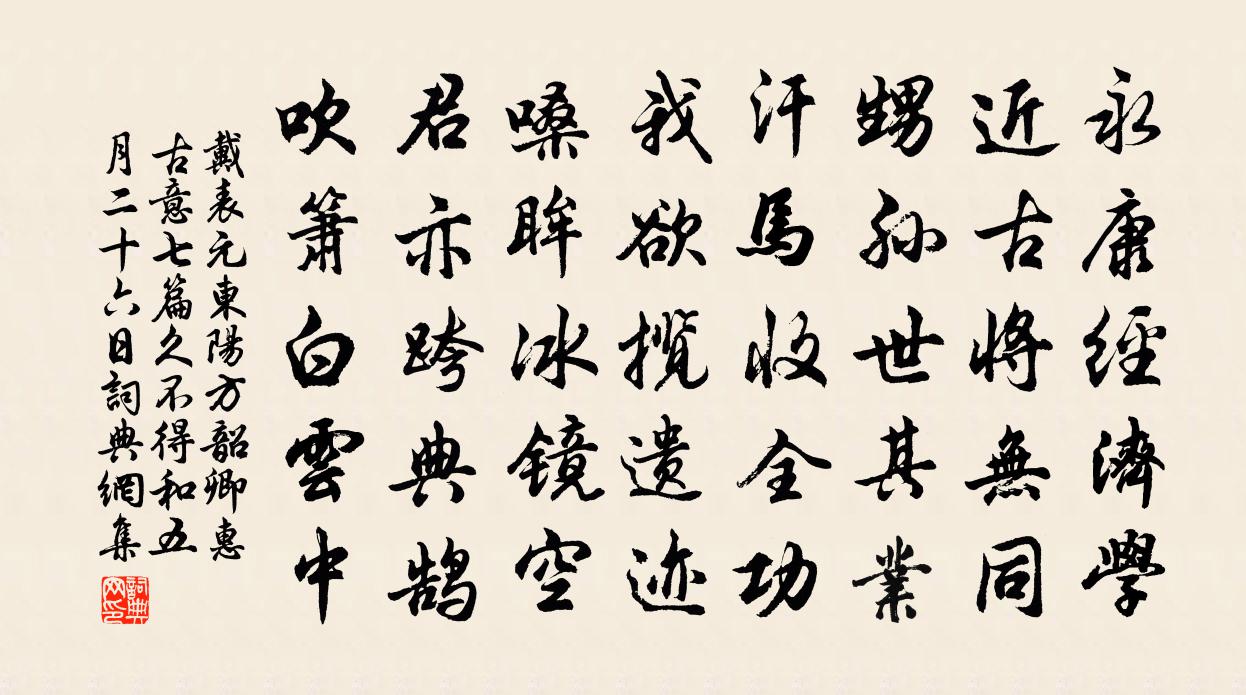 永康經濟學
近古將無同
甥孫世其業
汗馬收全功
我欲攬遗迹
嗓眸冰镜空
君亦跨典鹄
吹簫白雲中
戴表元東陽方韶卿惠
古意七篇久不得和五
月二十六日詞典網集
詞典网印